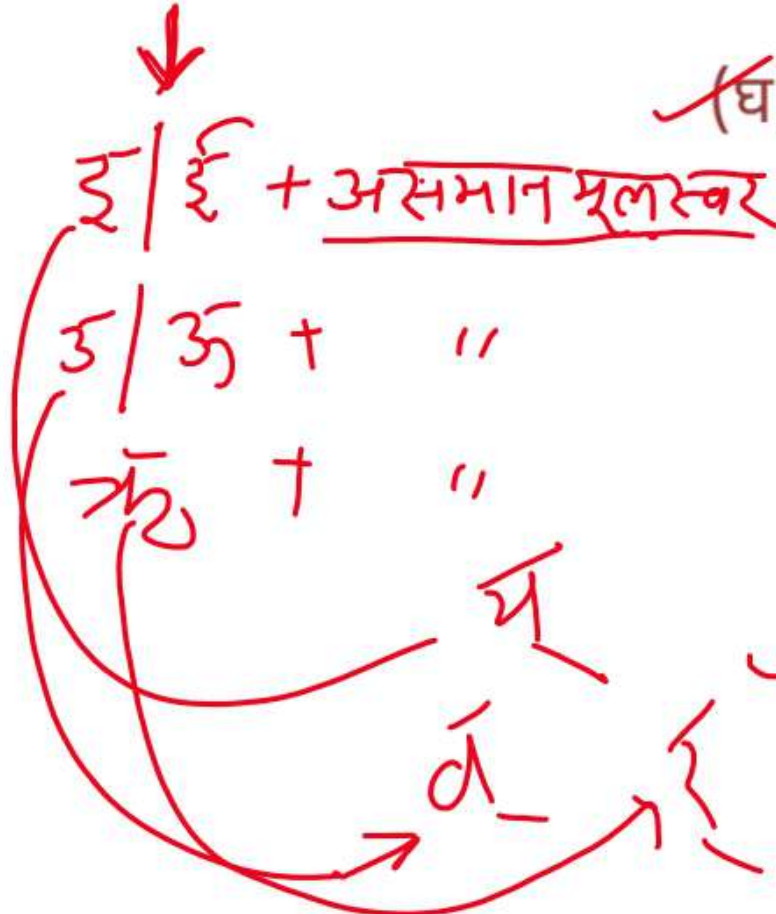 (घ
इ / ई + असमान मूलस्वर
उ / ऊ + "
ऋ + "
य्
व् र्